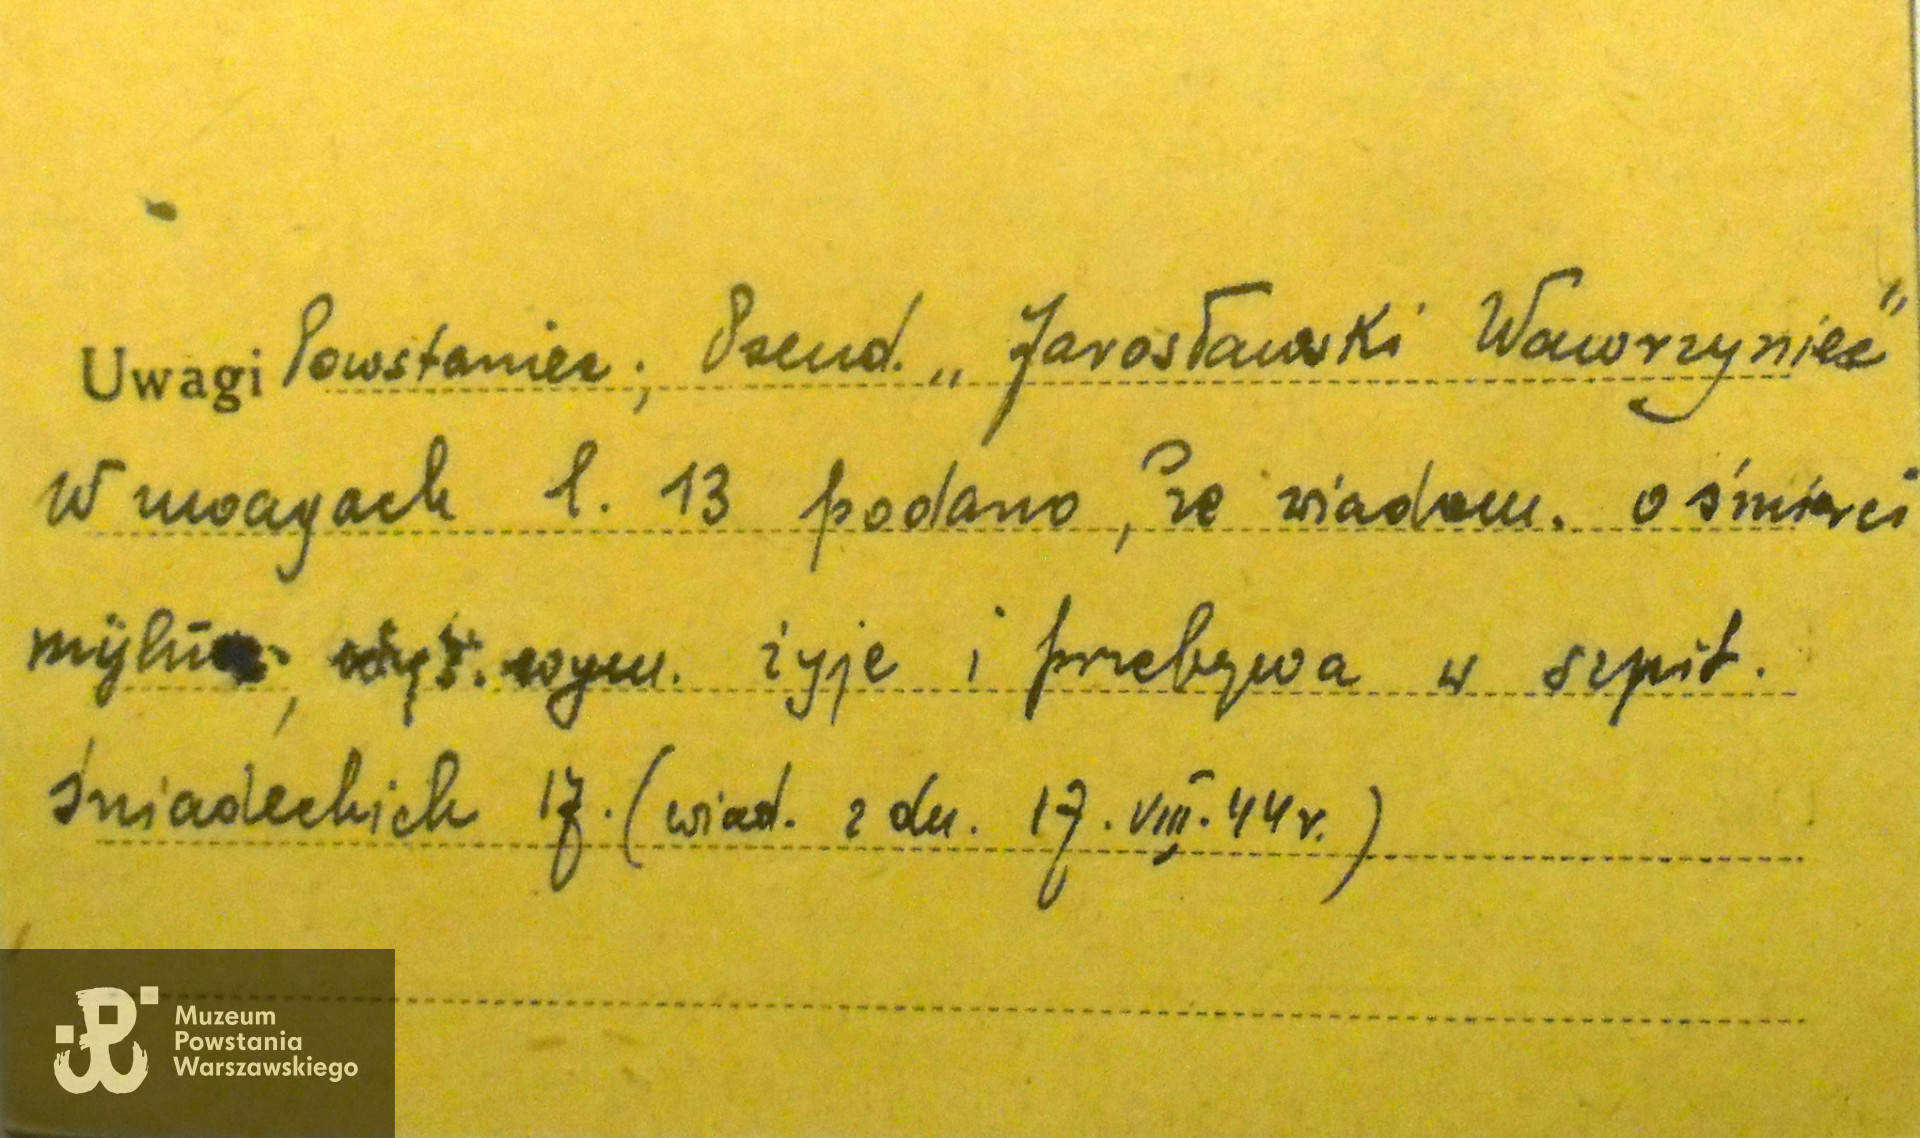 Uwagi Powstaniec; Pseud. „Jarosławski Wawrzyniec"
W uwagach l. 13 podano, że wiadom. o śmierci
mylna, wym. żyje i przebywa w szpit.
Śniadeckich 17. (wiad. z dn. 17.VIII.44r.)
Muzeum
Powstania
Warszawskiego